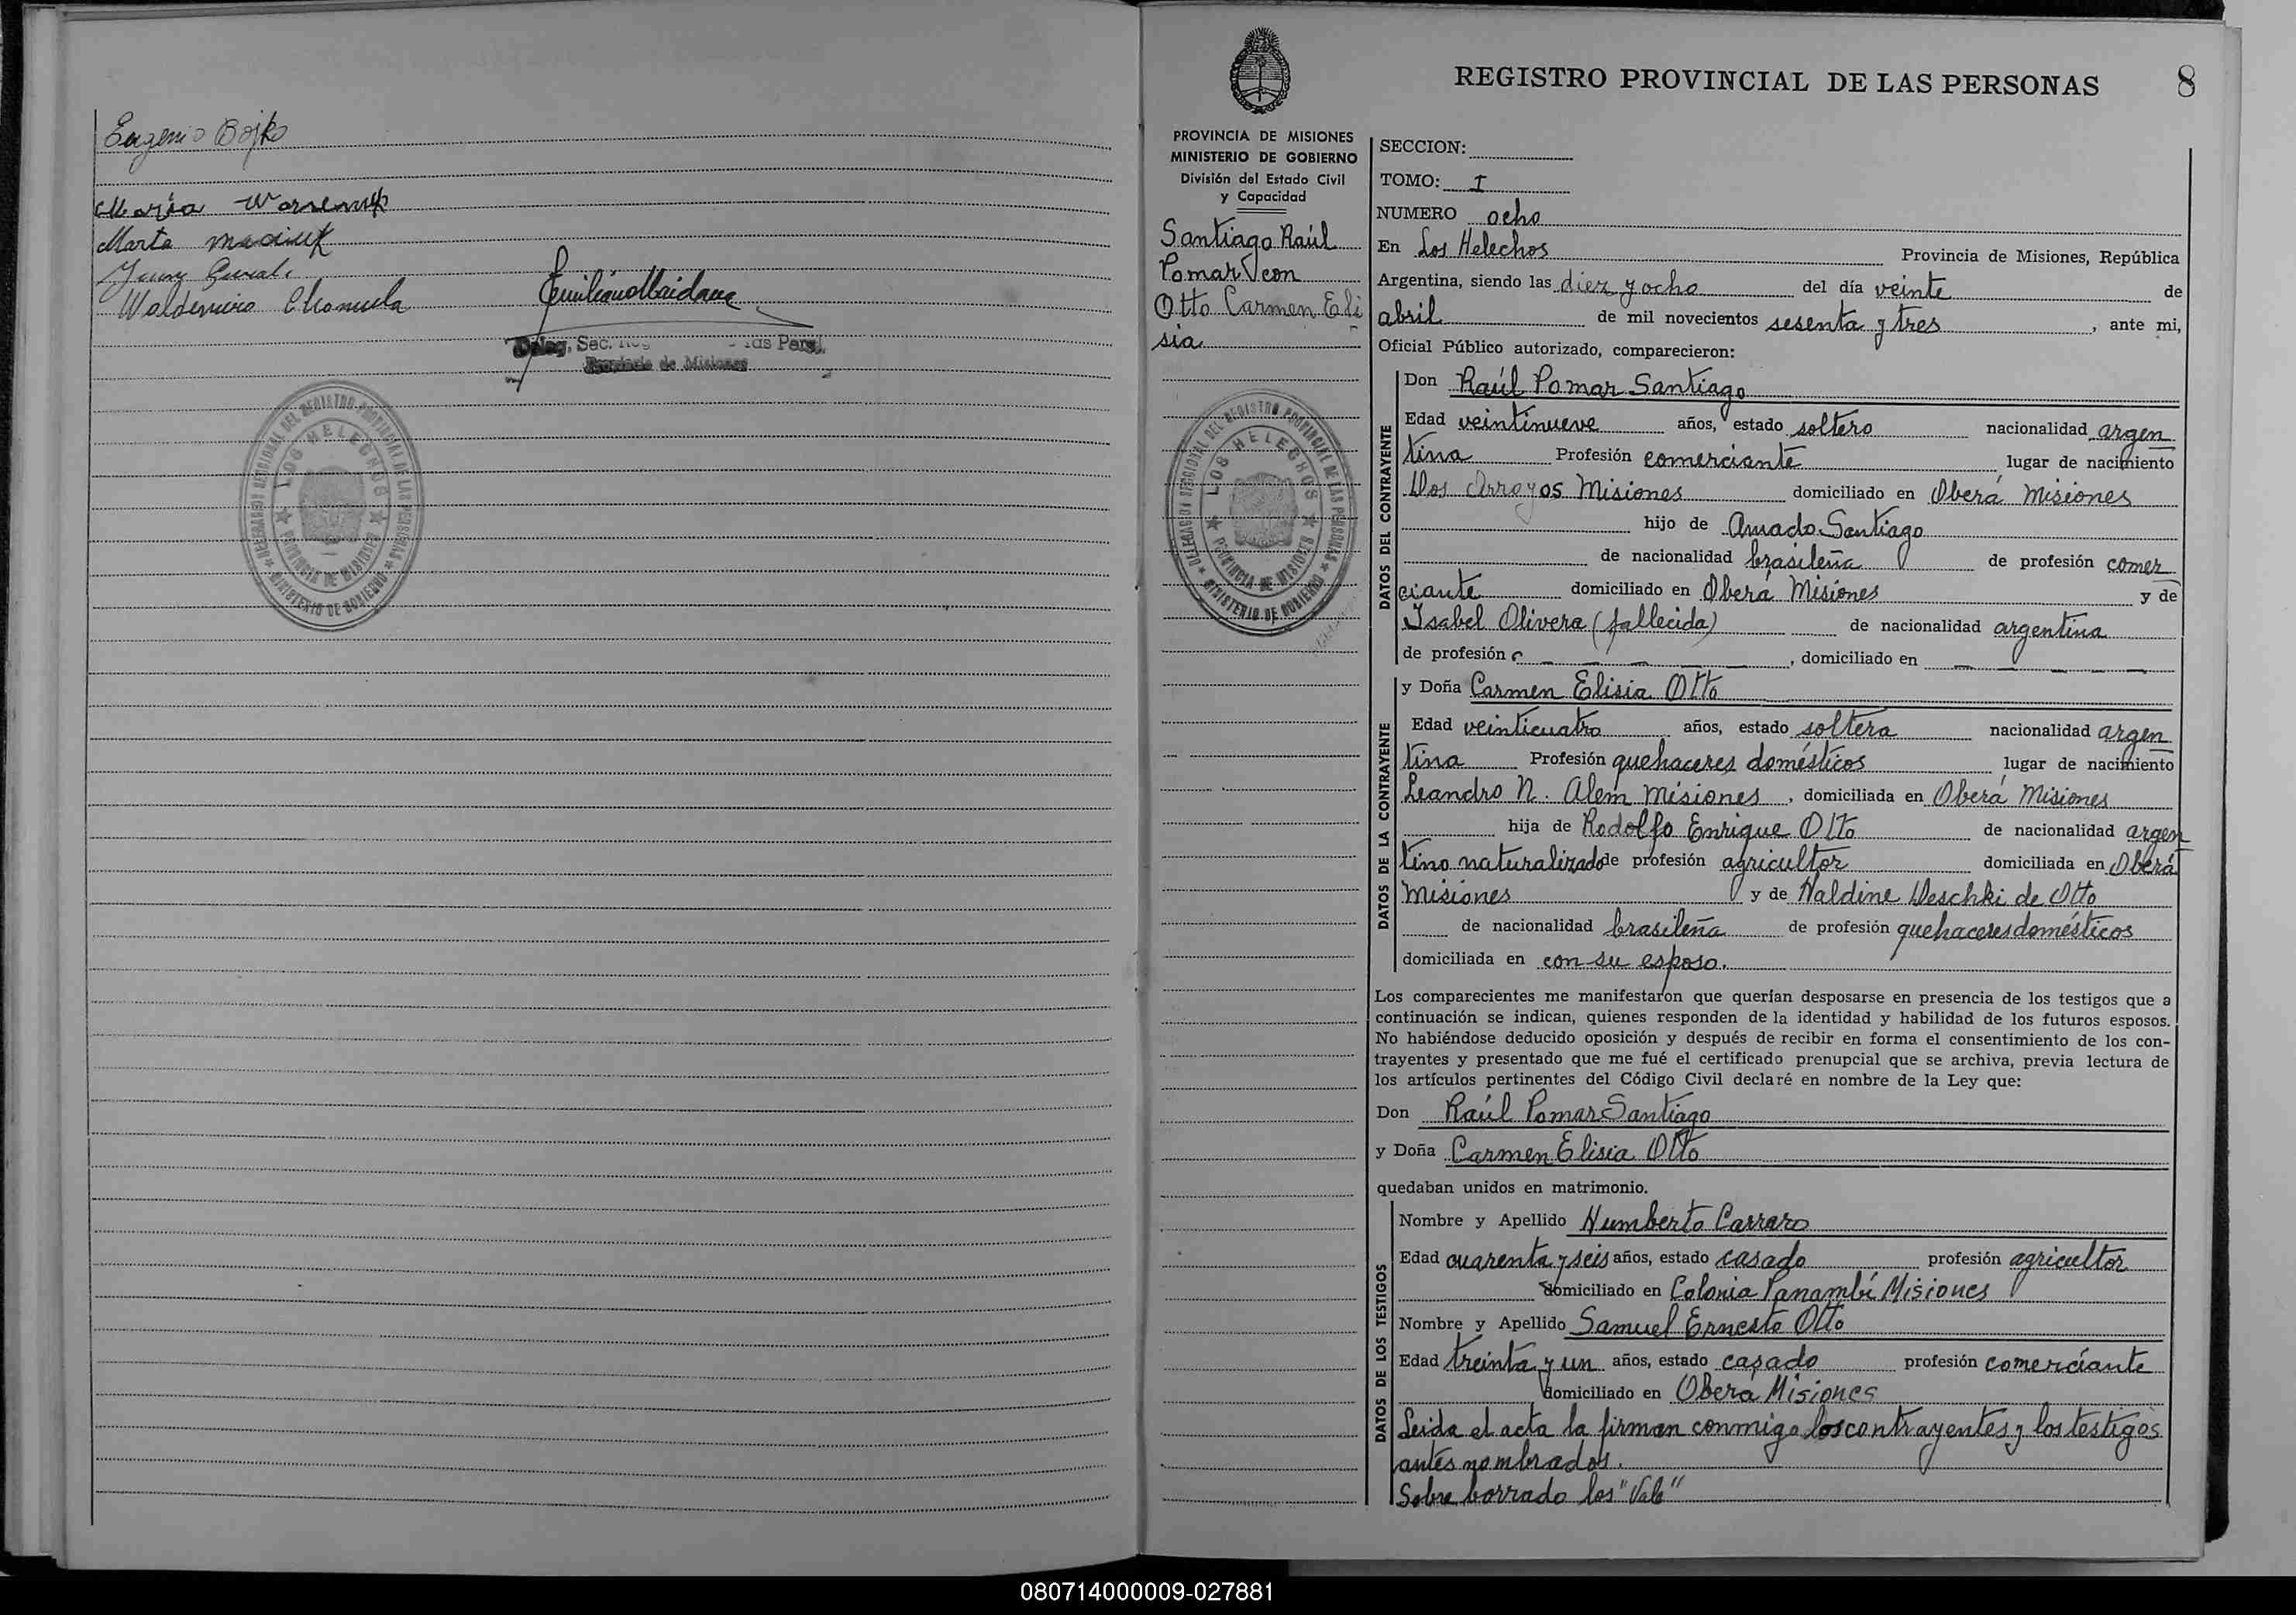 Eugenio Bojko
Maria
Marta
Waldemiro
Emiliano Maidana
Deleg. Sec.
Provincia de Misiones
DELEGADOS SECCIONAL DEL REGISTRO PROVINCIAL DE LAS PERSONAS
LOS HELECHOS
PROVINCIA DE MISIONES
MINISTERIO DE GOBIERNO
REGISTRO PROVINCIAL DE LAS PERSONAS 8
PROVINCIA DE MISIONES
MINISTERIO DE GOBIERNO
División del Estado Civil
y Capacidad
Santiago Raúl
Pomar con
Otto Carmen Eli
sia
DELEGADOS SECCIONAL DEL REGISTRO PROVINCIAL DE LAS PERSONAS
LOS HELECHOS
PROVINCIA DE MISIONES
MINISTERIO DE GOBIERNO
SECCION:
TOMO: I
NUMERO ocho
En Los Helechos Provincia de Misiones, República
Argentina, siendo las diez y ocho del día veinte de
abril de mil novecientos sesenta y tres, ante mi,
Oficial Público autorizado, comparecieron:
DATOS DEL CONTRAYENTE
Don Raúl Pomar Santiago
Edad veintinueve años, estado soltero nacionalidad argen
tina Profesión comerciante lugar de nacimiento
Dos Arroyos Misiones domiciliado en Oberá Misiones
hijo de Amado Santiago
de nacionalidad brasileña de profesión comer
ciante domiciliado en Oberá Misiones y de
Isabel Olivera (fallecida) de nacionalidad argentina
de profesión — — — —, domiciliado en — — — —
DATOS DE LA CONTRAYENTE
y Doña Carmen Elisia Otto
Edad veinticuatro años, estado soltera nacionalidad argen
tina Profesión quehaceres domésticos lugar de nacimiento
Leandro N. Alem Misiones, domiciliada en Oberá Misiones
hija de Rodolfo Enrique Otto de nacionalidad argen
tino naturalizado de profesión agricultor domiciliada en Oberá
Misiones y de Haldine Weschki de Otto
de nacionalidad brasileña de profesión quehaceres domésticos
domiciliada en con su esposo.
Los comparecientes me manifestaron que querían desposarse en presencia de los testigos que a
continuación se indican, quienes responden de la identidad y habilidad de los futuros esposos.
No habiéndose deducido oposición y después de recibir en forma el consentimiento de los con-
trayentes y presentado que me fué el certificado prenupcial que se archiva, previa lectura de
los artículos pertinentes del Código Civil declaré en nombre de la Ley que:
Don Raúl Pomar Santiago
y Doña Carmen Elisia Otto
quedaban unidos en matrimonio.
DATOS DE LOS TESTIGOS
Nombre y Apellido Humberto Carraro
Edad cuarenta y seis años, estado casado profesión agricultor
domiciliado en Colonia Panambí Misiones
Nombre y Apellido Samuel Ernesto Otto
Edad treinta y un años, estado casado profesión comerciante
domiciliado en Oberá Misiones
Leida el acta la firman conmigo los contrayentes y los testigos
antes nombrados.
Sobre borrado los "Vale"
080714000009-027881